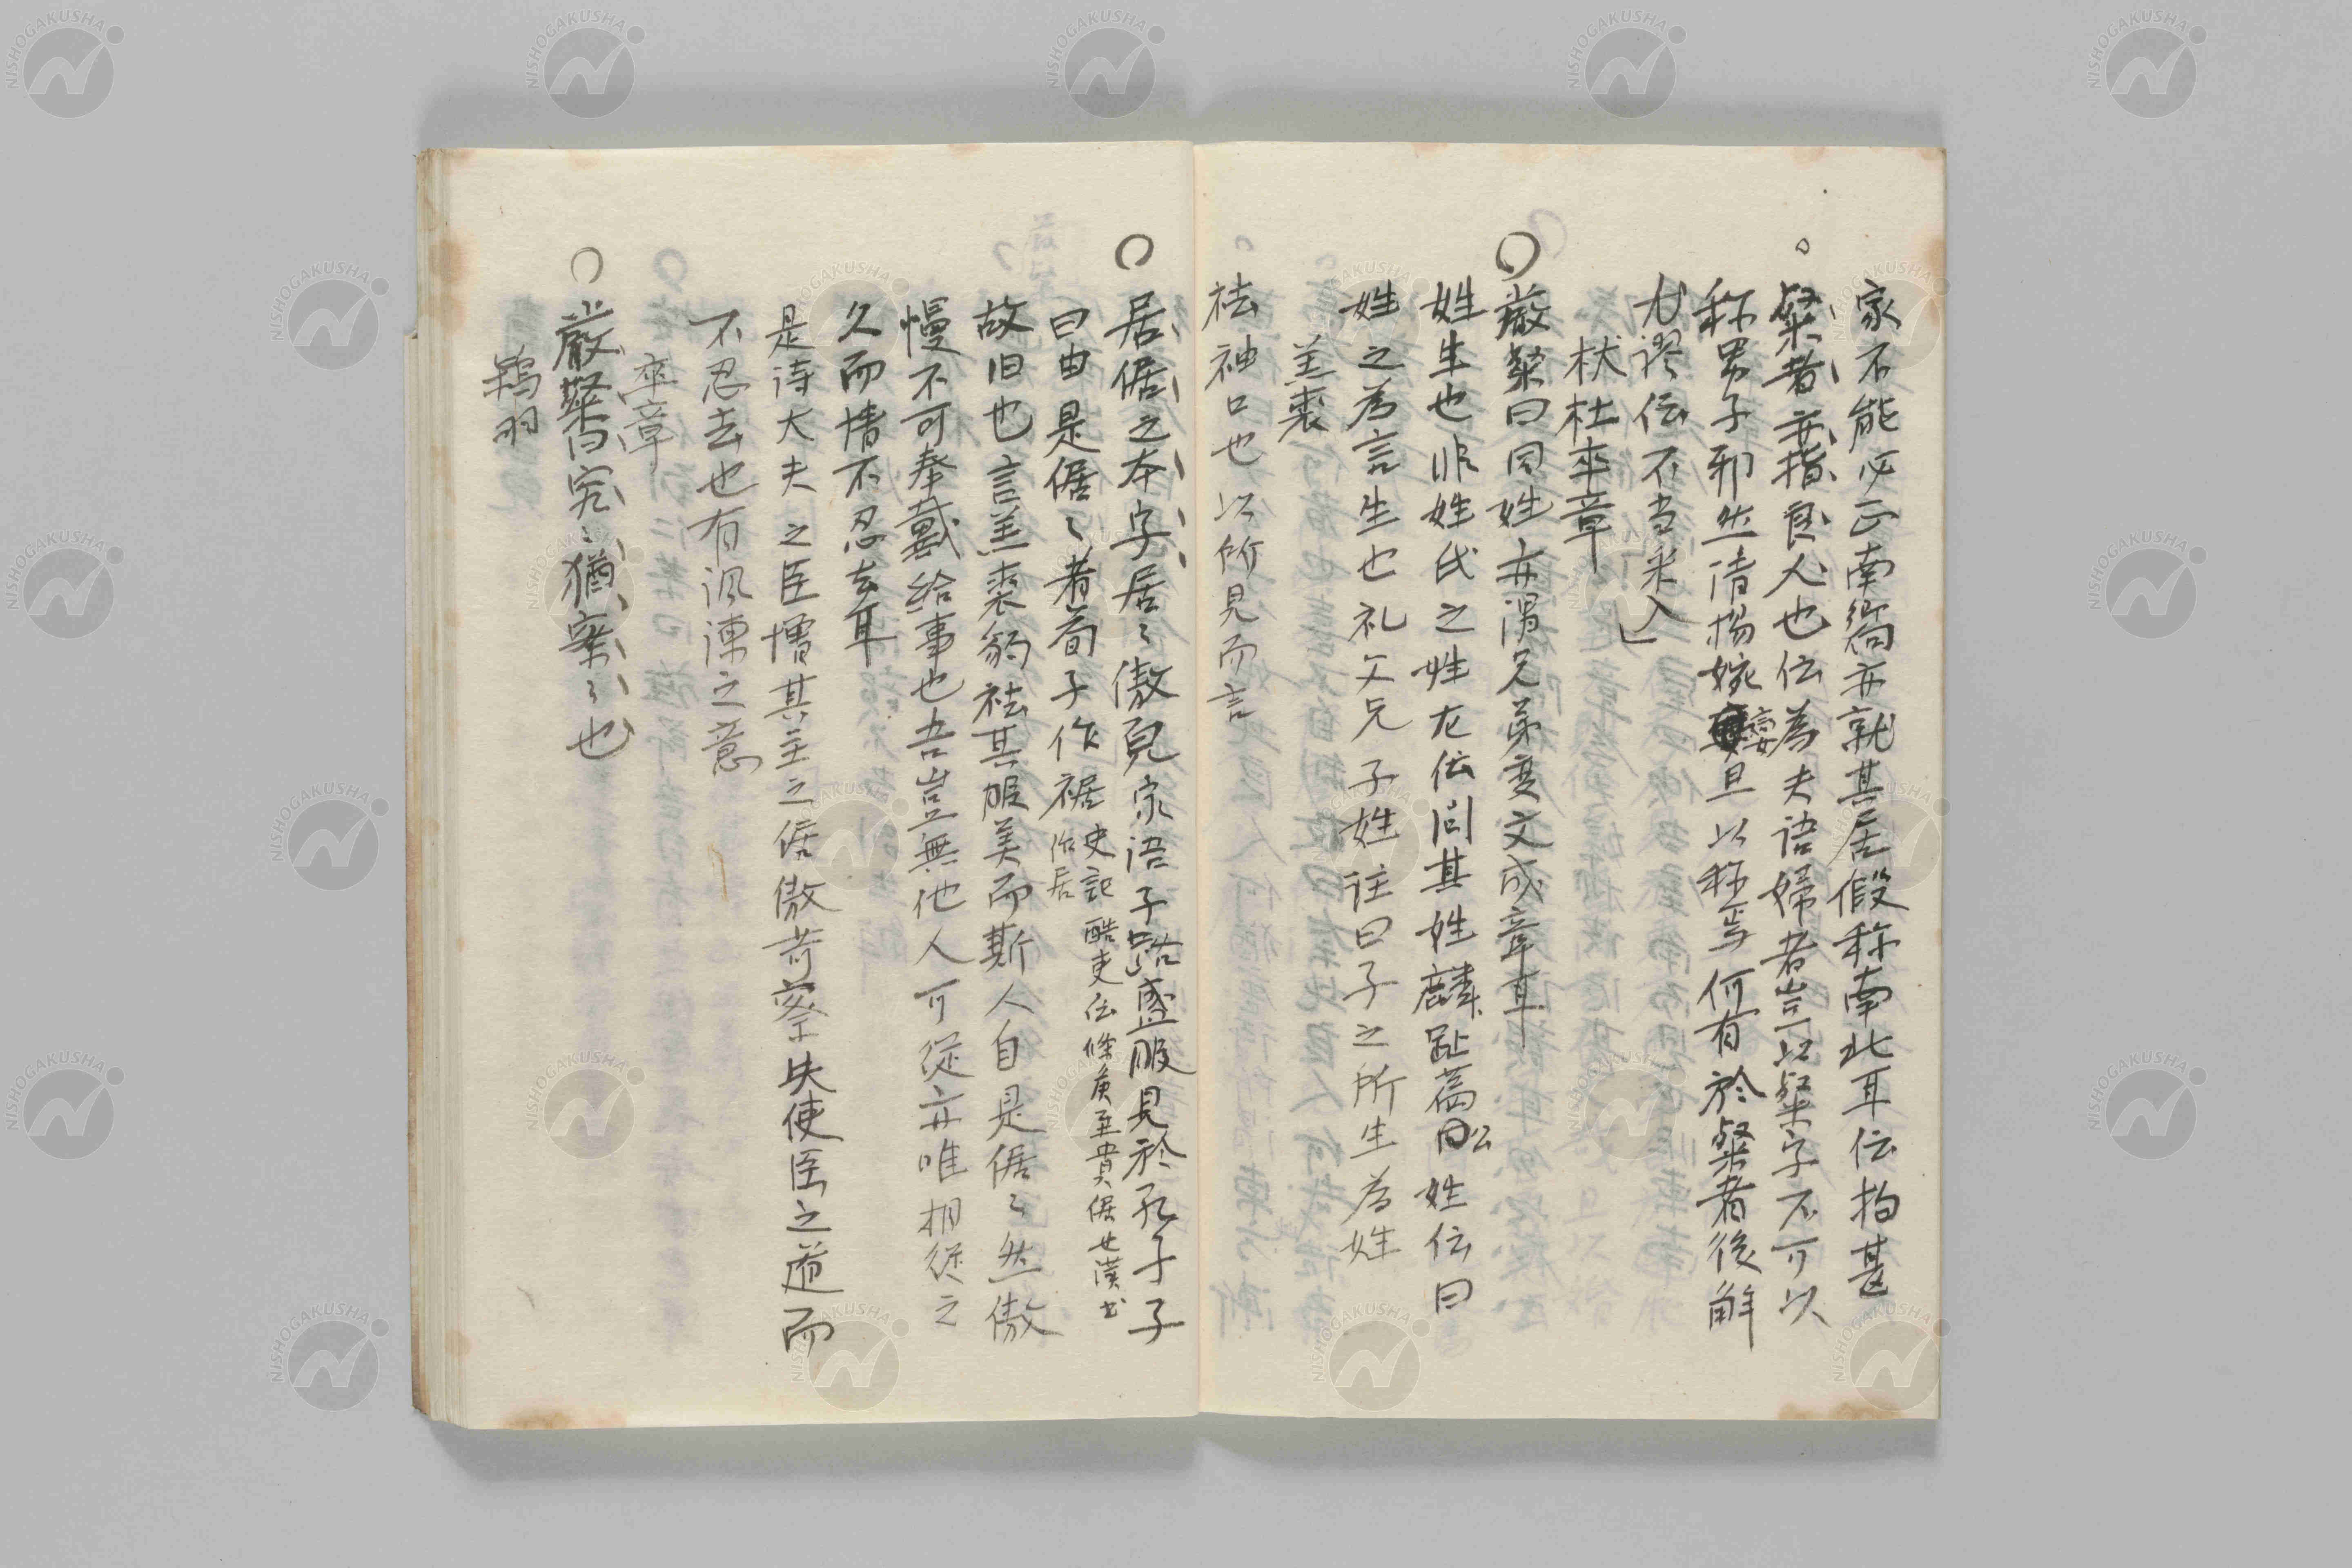 家不能必正南嚮亦就其居假称南北耳伝拘甚
。粲者亦指良人也伝為夫語婦者豈以粲字不可以
称男子邪然清揚婉娈旦以称焉何有於粲者後解
尤謬伝不当采入」
杕杜卒章
○厳粲曰同姓亦謂兄弟変文成章耳
姓生也非姓氏之姓左伝問其姓麟趾篇公姓伝曰
姓之為言生也礼文兄子姓注曰子之所生為姓
羔裘
祛袖口也以所見而言
○居倨之本字居〻傲皃家語子路盛服見於孔子子
曰由是倨〻者荀子作裾史記酷吏伝條侯至貴倨也漢書作居
故旧也言羔裘豹祛其服美而斯人自是倨〻然傲
慢不可奉戴給事也吾豈無他人可従亦唯相従之
久而情不忍去耳
是詩大夫之臣憎其主之倨傲苛察失使臣之道而
不忍去也有諷諫之意
卒章
○嚴粲曰究〻猶察〻也
鴇羽
NISHOGAKUSHA